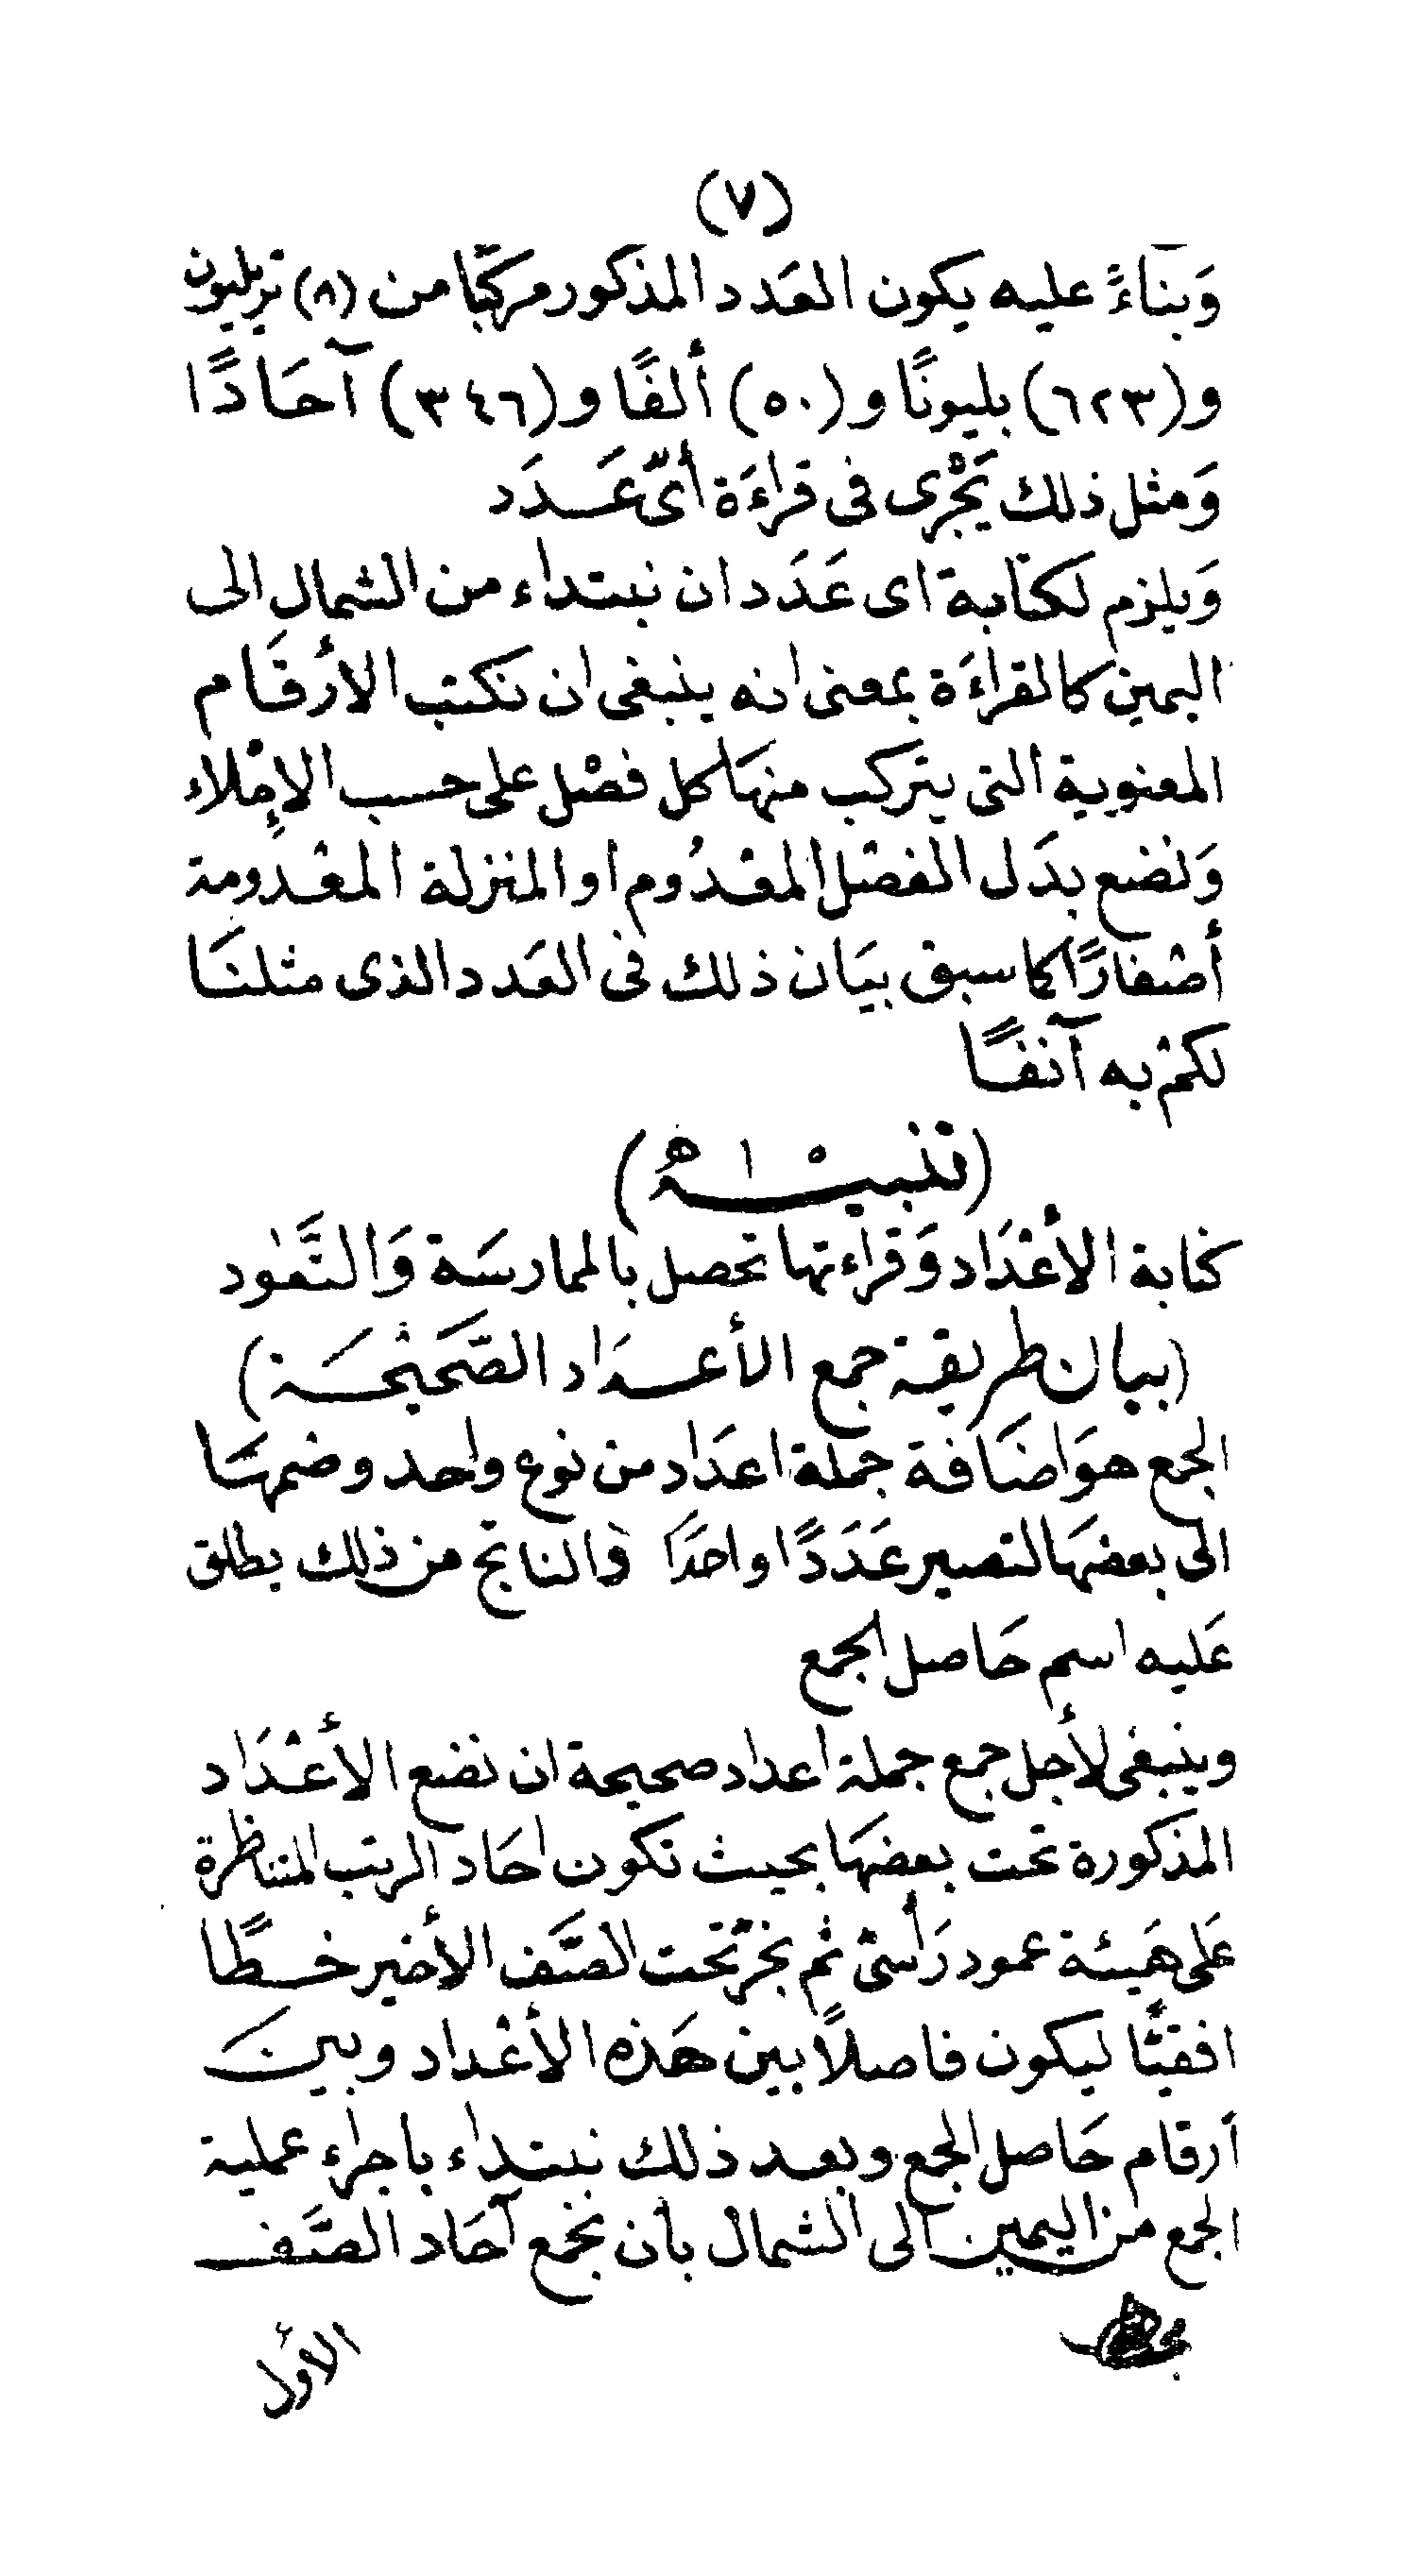 (٧)
وَبنآءً عليه يكون العَدد المذكور مركّبًا من (٨) تريليون
و(٦٢٣) بليونًا و(٥٠) ألفًا و(٣٤٦) آحَادًا
وَمثل ذلك يَجْرى فى قراءَة أىّ عَدَد
وَيلزم لكتابة اى عَدَد ان نبتداء من الشمال الى
اليمين كالقراءَة بمعنى انه ينبغى ان نكتب الأرقَام
المعنوية التى يتركب منهَا كل فصْل على حسب الإملاء
وَنضع بدَل الفصْل المعْدُوم او المنزلة المعْدومة
أصْفارًا كما سبق بيَان ذلك فى العَدد الذى مثلنَا
لكمْ به آنفًا
(تنبيْه)
كتابة الأعْدَاد وَقراءتها تحصل بالممارسَة وَالتَّعود
(بيان طريقة جمع الأعدَاد الصَّحيْحَة)
الجمع هوَ اضَافة جملة اعدَاد من نوع واحد وضمهَا
الى بعضهَا لتصير عَدَدًا واحدًا والناتج من ذلك يطلق
عَليه اسم حَاصل الجمع
وينبغى لأجل جمع جملة اعداد صحيحة ان نضع الأعْدَاد
المذكورة تحت بعضهَا بحيث تكون احَاد الرتب المتناظرة
عَلى هَيئة عمود رَأسىّ ثم نجرّ تحت الصَّف الأخير خطًا
افقيًّا ليكون فاصلًا بين هَذه الأعْداد وبينَ
أرقام حَاصل الجمع وبعد ذلك نبتداء باجراء عملية
الجمع من اليمين الى الشمال بأن نجمع آحَاد الصَّف
الأول